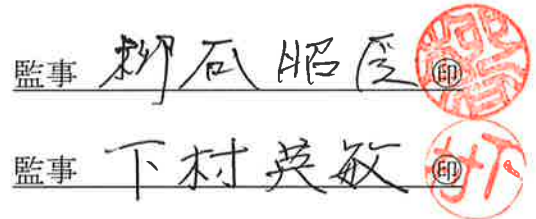 監事 柳瓜昭 ㊞
監事 下村英敏 ㊞